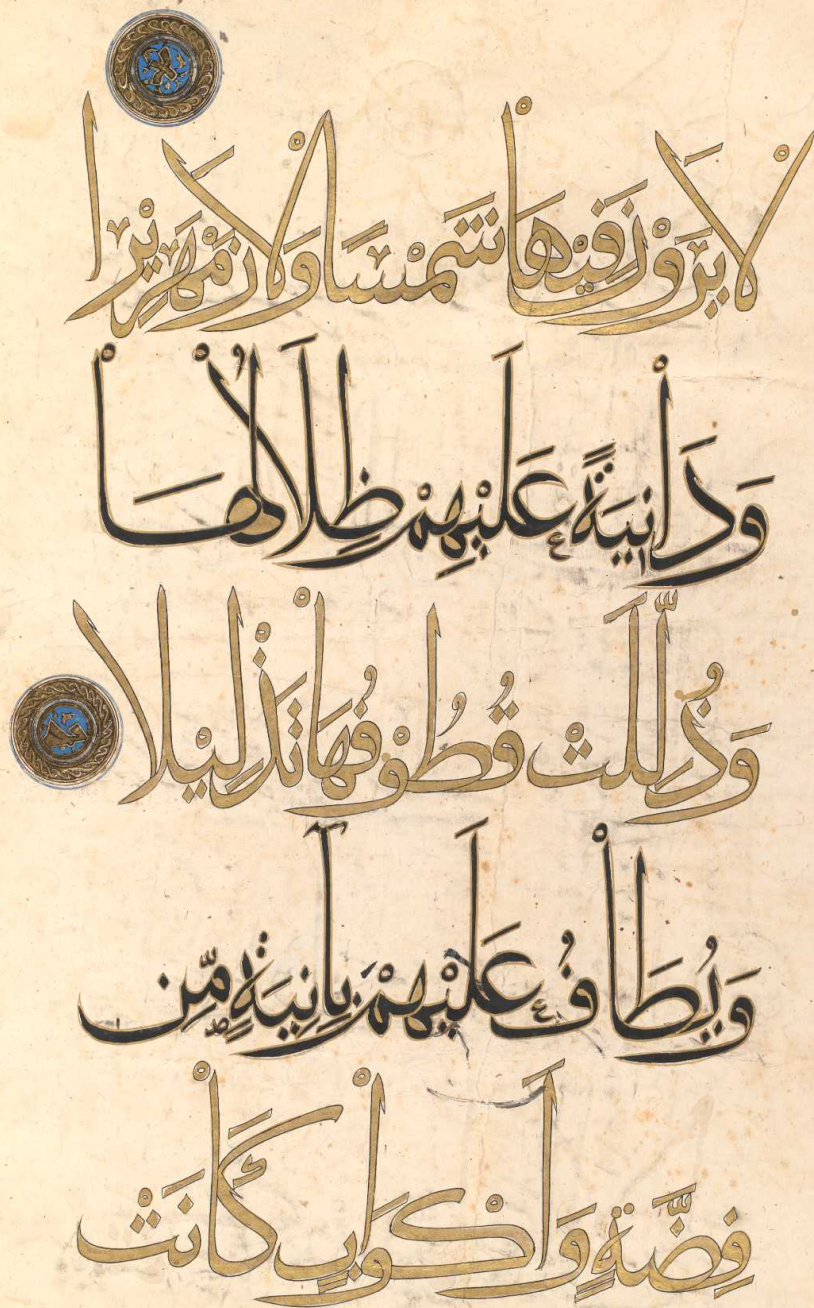 لَا يَرَوْنَ فِيْهَا شَمْسًا وَلَا زَمْهَرِيْرًا
وَدَانِيَةً عَلَيْهِمْ ظِلَالُهَا
وَذُلِّلَتْ قُطُوْفُهَا تَذْلِيْلًا
وَيُطَافُ عَلَيْهِمْ بِآنِيَةٍ مِّن
فِضَّةٍ وَأَكْوَابٍ كَانَتْ